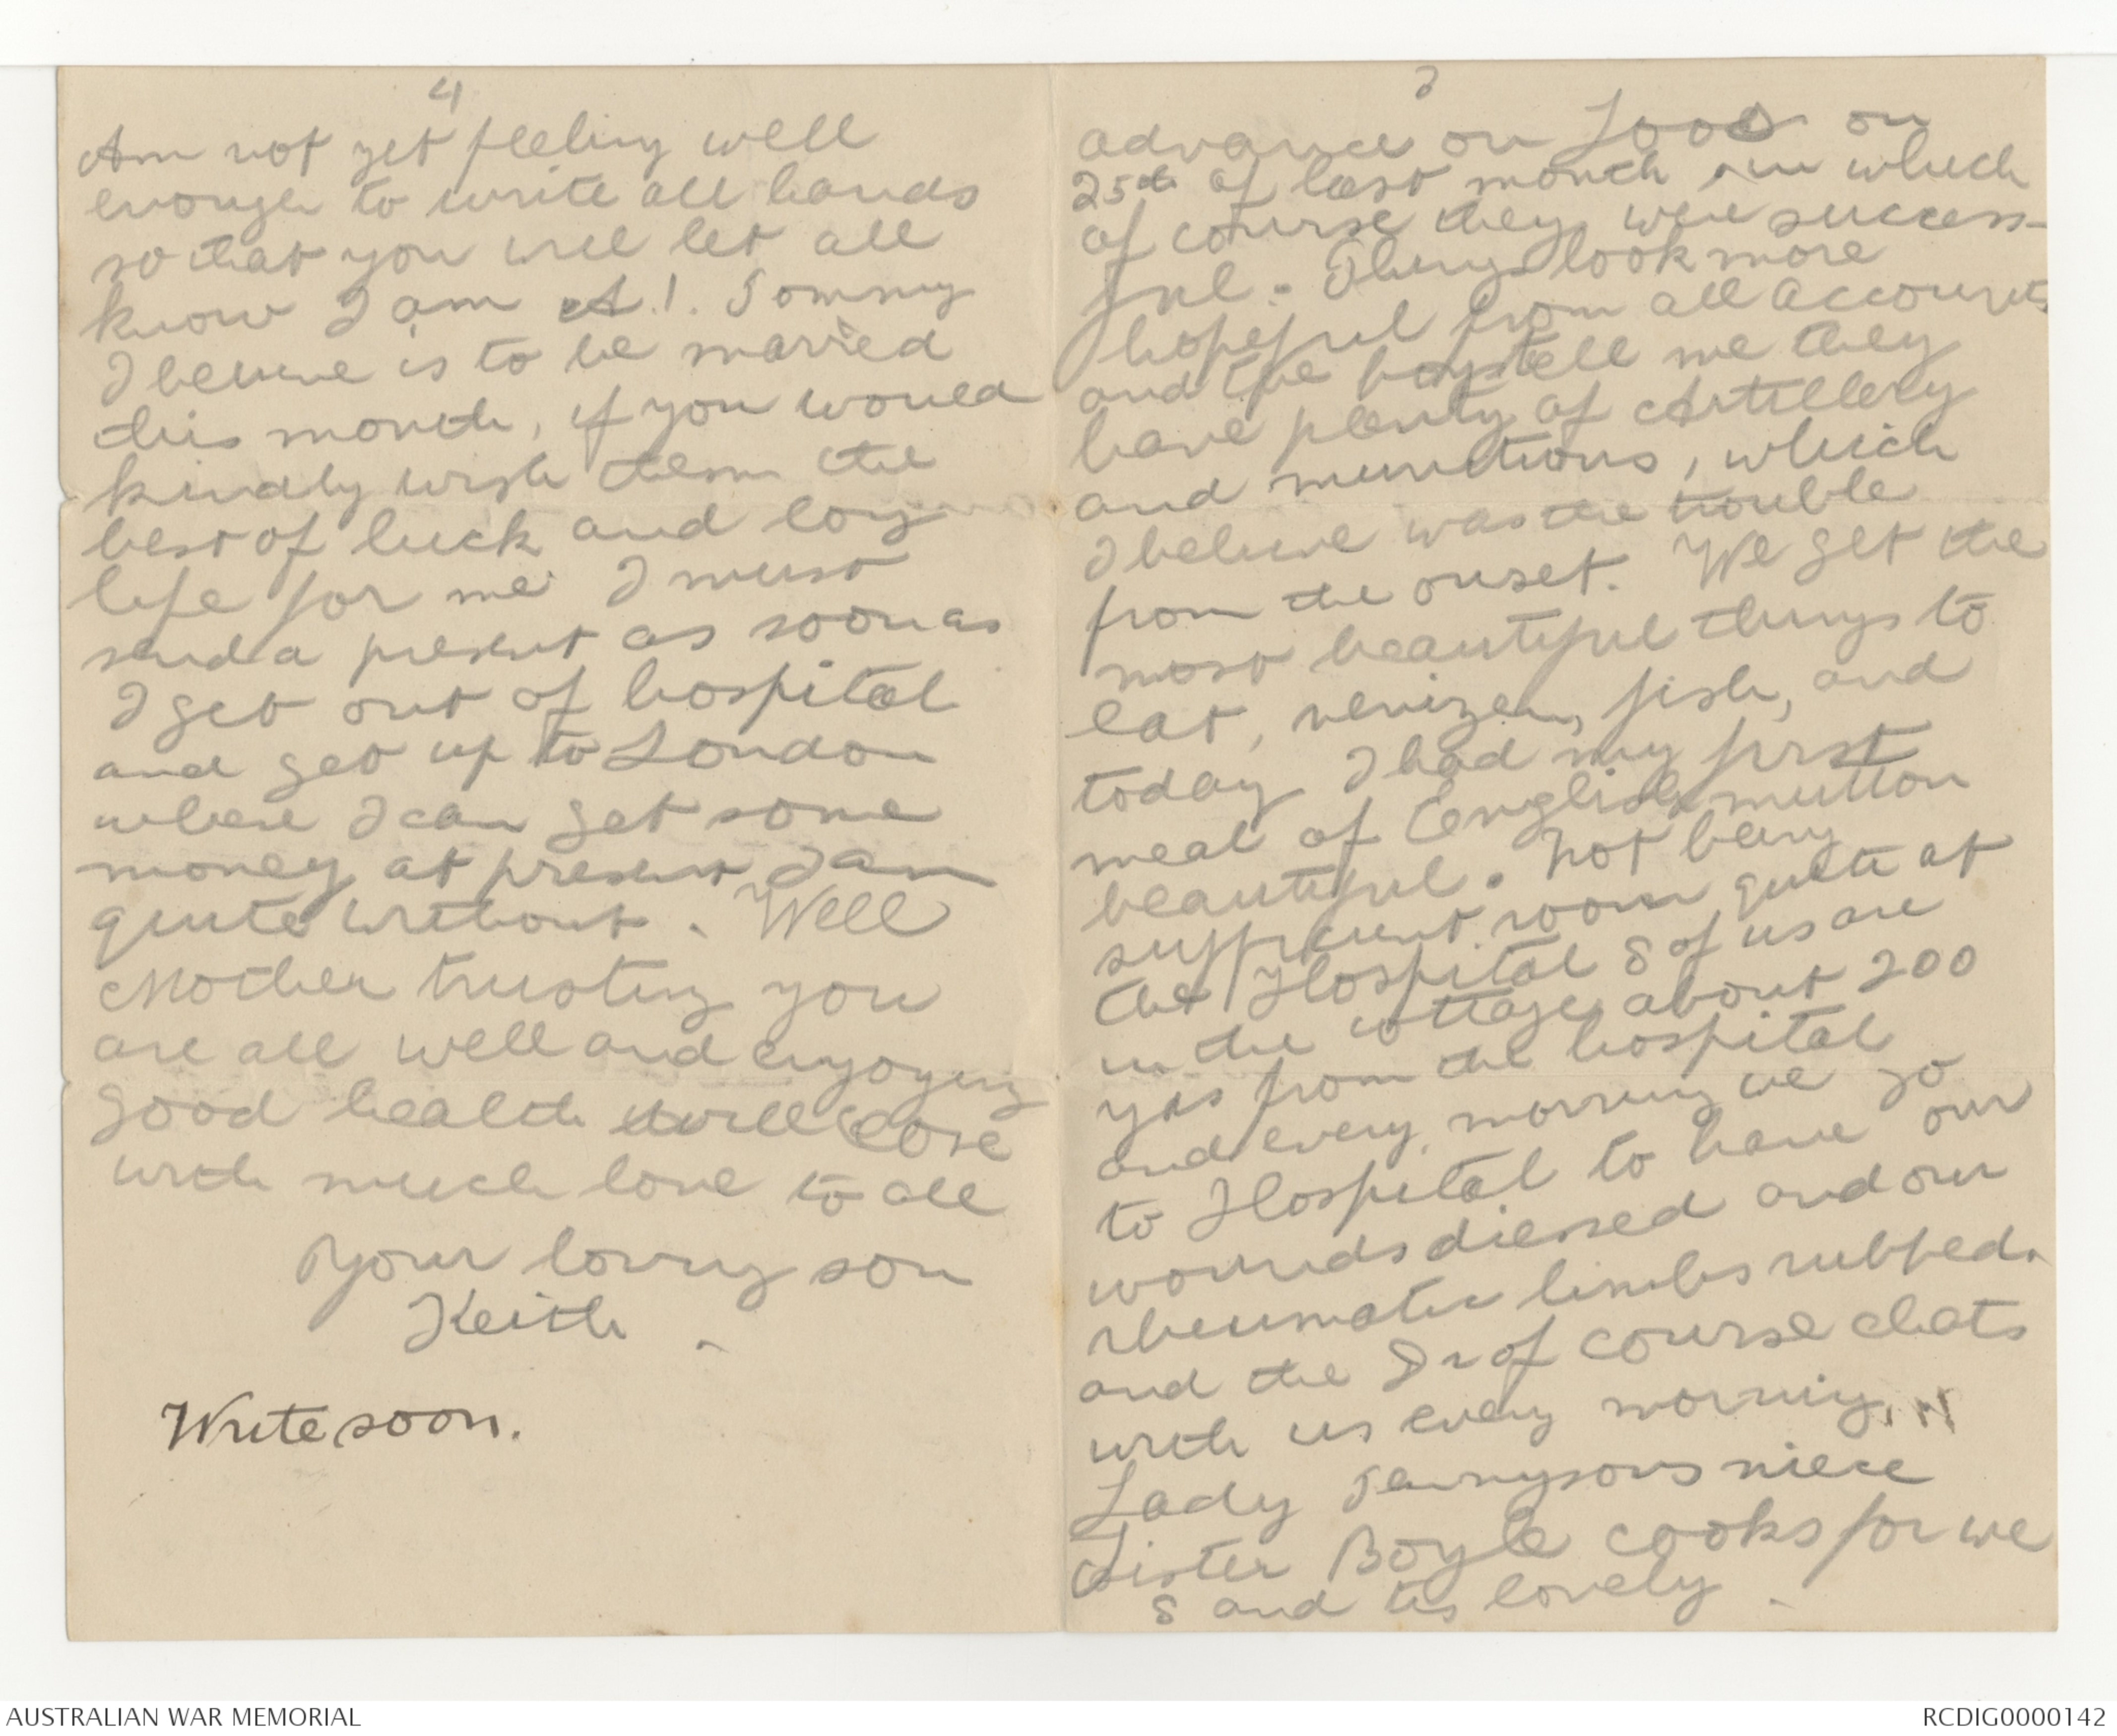 4
Am not yet feeling well
enough to write all hands
so that you will let all
know I am A.1. Tommy
I believe is to be married
this month, if you would
kindly wish them the
best of luck and long
life for me I must
send a present as soon as
I get out of hospital
and get up to London
where I can get some
money at present I am
quite without. Well
Mother trusting you
are all well and enjoying
good health will close
with much love to all
Your loving son
Keith.
Write soon.
advance on Loos on
25th of last month in which
of course they were success-
ful. Things look more
hopeful from all accounts
and the boys tell me they
have plenty of Artillery
and munitions, which
I believe was the trouble
from the onset. We get the
most beautiful things to
eat, venizen, fish, and
today I had my first
meal of English mutton
beautiful. Not being
sufficient room quite at
the Hospital 8 of us are
in the cottage about 200
yds from the hospital
and every morning we go
to Hospital to have our
wounds dressed and our
rheumatic limbs rubbed.
and the Dr of course chats
with us every morning.
Lady Tennysons niece
Sister Boyle cooks for we
8 and tis lovely.
AUSTRALIAN WAR MEMORIAL
RCDIG0000142